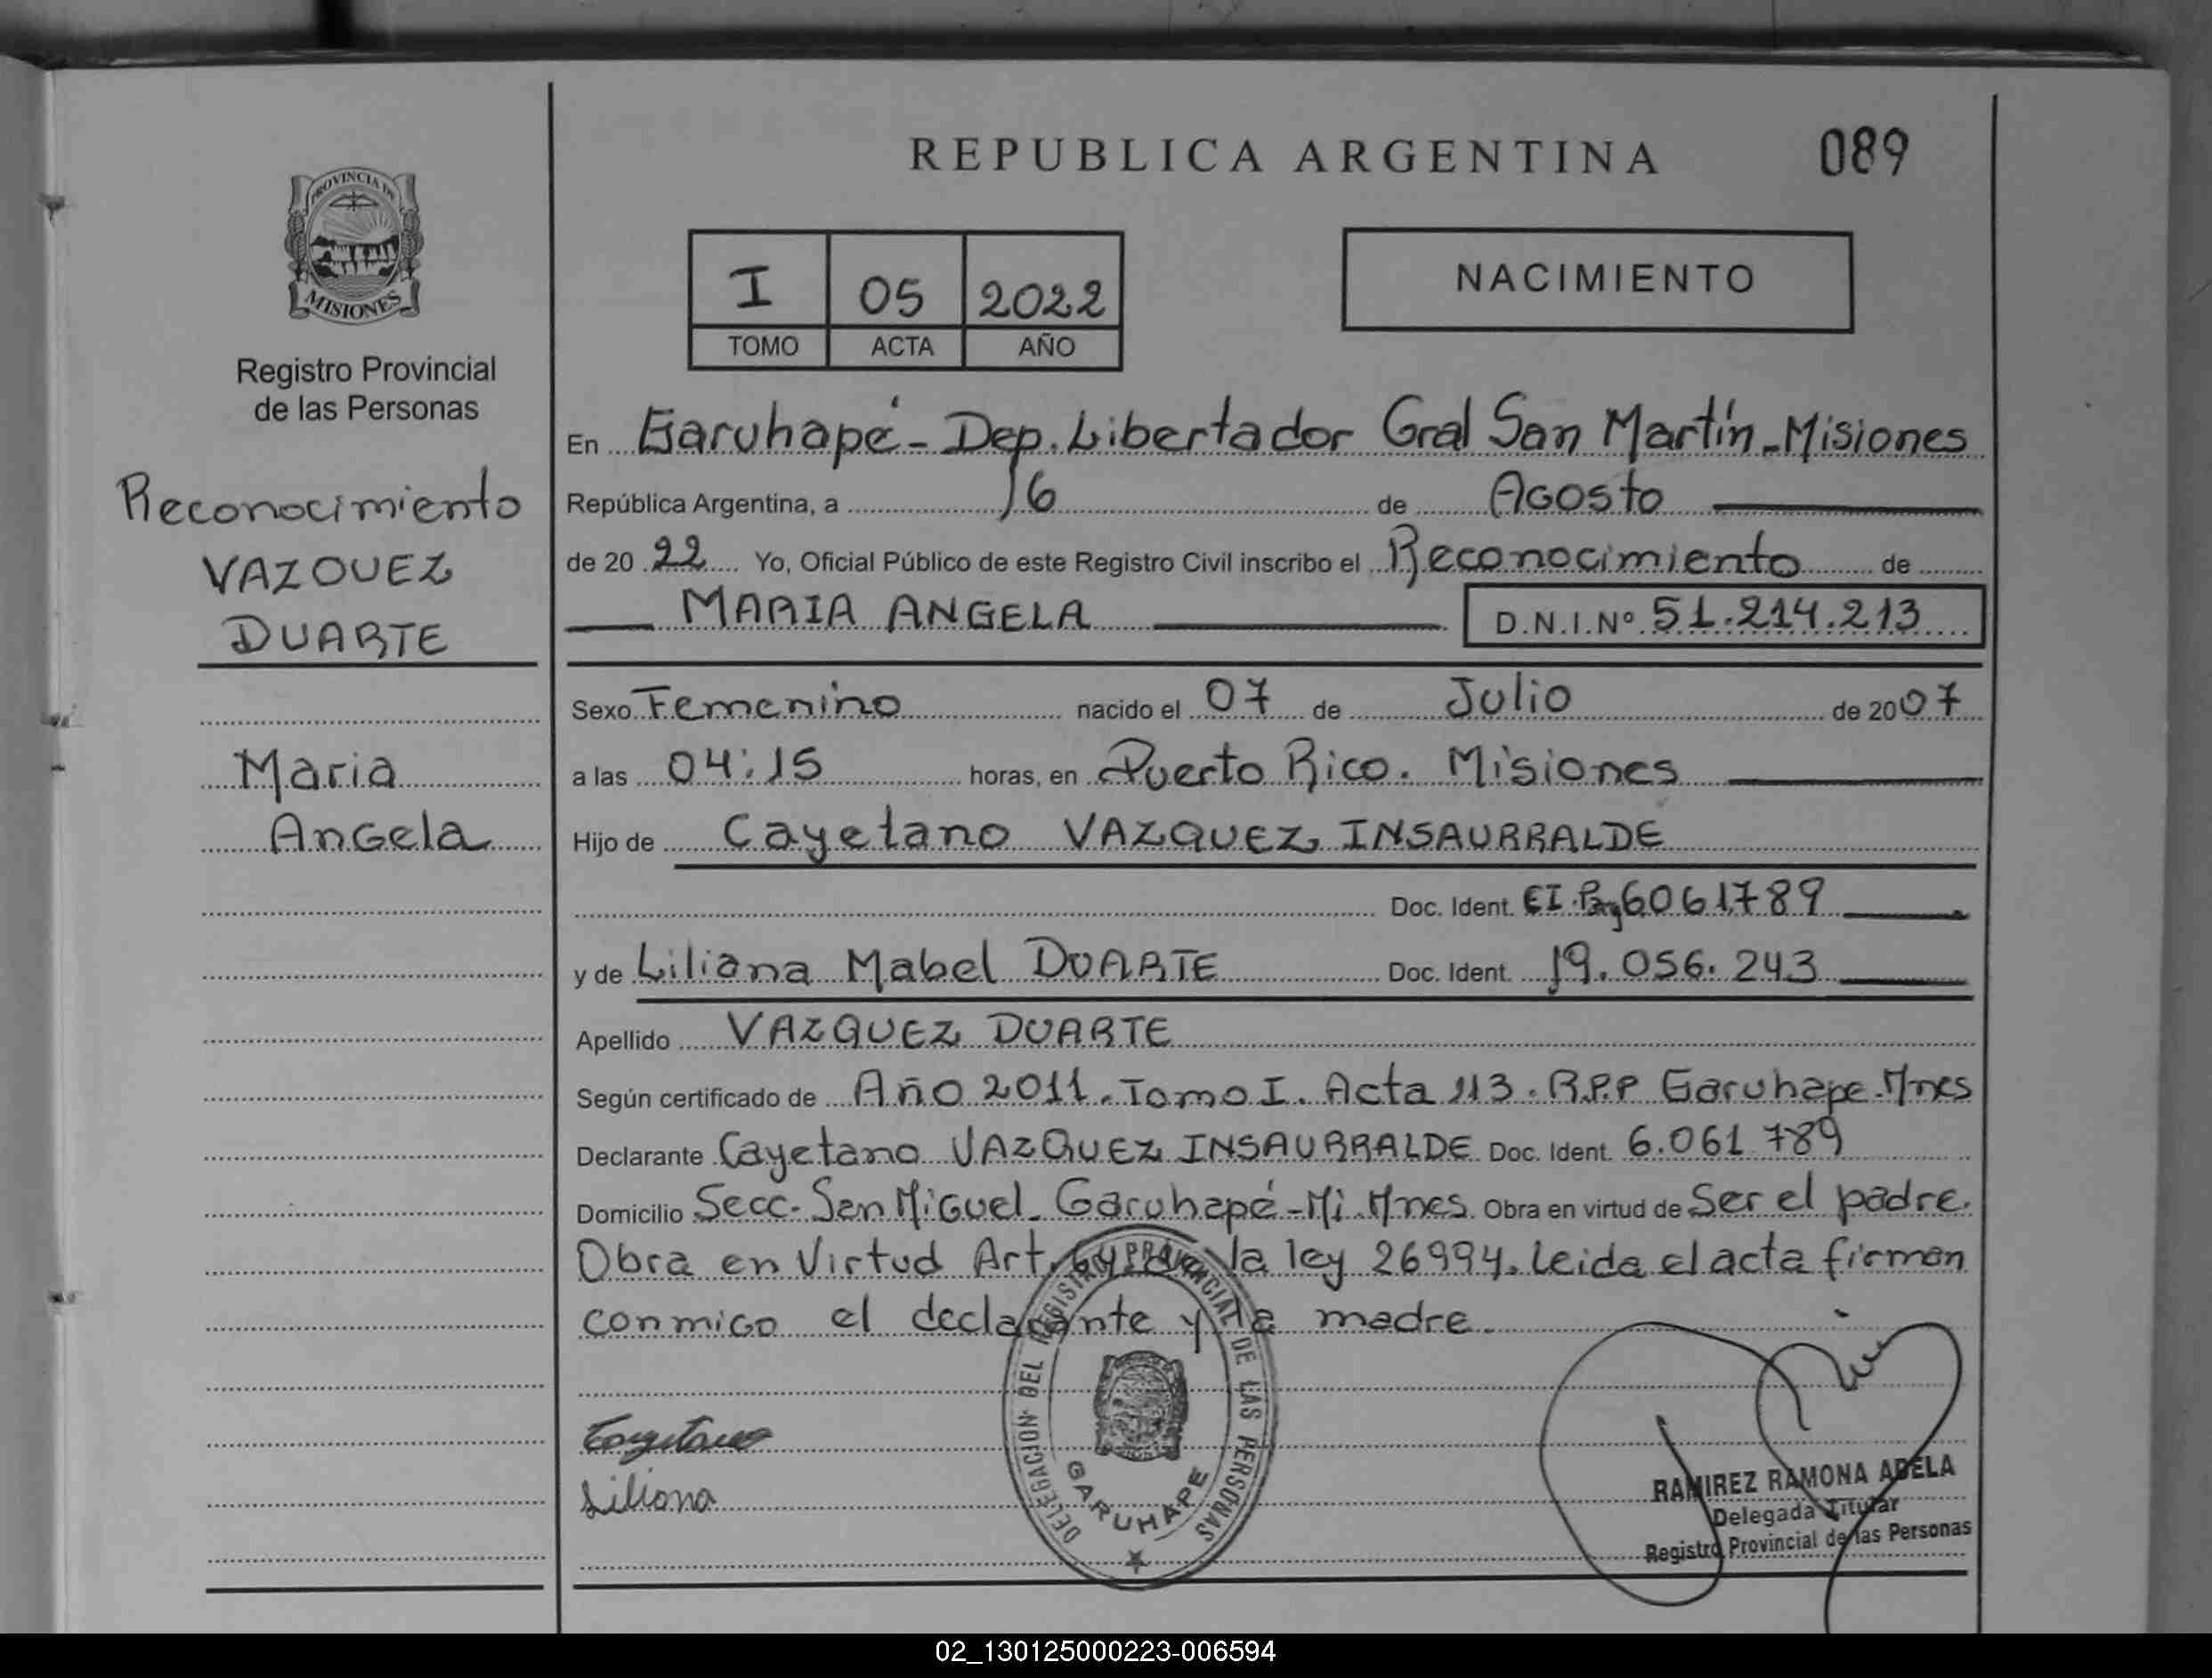 REPUBLICA ARGENTINA
089
PROVINCIA DE
MISIONES
Registro Provincial
de las Personas
Reconocimiento
VAZQUEZ
DUARTE
Maria
Angela
I 05 2022
TOMO ACTA AÑO
NACIMIENTO
En Garuhapé - Dep. Libertador Gral San Martín - Misiones
República Argentina, a 16 de Agosto
de 20 22 Yo, Oficial Público de este Registro Civil inscribo el Reconocimiento de
MARIA ANGELA D.N.I.Nº 51.214.213
Sexo Femenino nacido el 07 de Julio de 20 07
a las 04:15 horas, en Puerto Rico. Misiones
Hijo de Cayetano VAZQUEZ INSAURRALDE
Doc. Ident. CI. Pay 6061789
y de Liliana Mabel DUARTE Doc. Ident. 19.056.243
Apellido VAZQUEZ DUARTE
Según certificado de Año 2011. Tomo I. Acta 113. R.P.P Garuhape. Mnes
Declarante Cayetano VAZQUEZ INSAURRALDE Doc. Ident. 6.061.789
Domicilio Secc. San Miguel. Garuhapé - Mi. Mnes. Obra en virtud de Ser el padre.
Obra en Virtud Art. de la ley 26994. Leida el acta firman
conmigo el declarante y la madre.
Cayetano
Liliana
DELEGACION DEL REGISTRO PROVINCIAL DE LAS PERSONAS
GARUHAPE
RAMIREZ RAMONA ADELA
Delegada Titular
Registro Provincial de las Personas
02_130125000223-006594